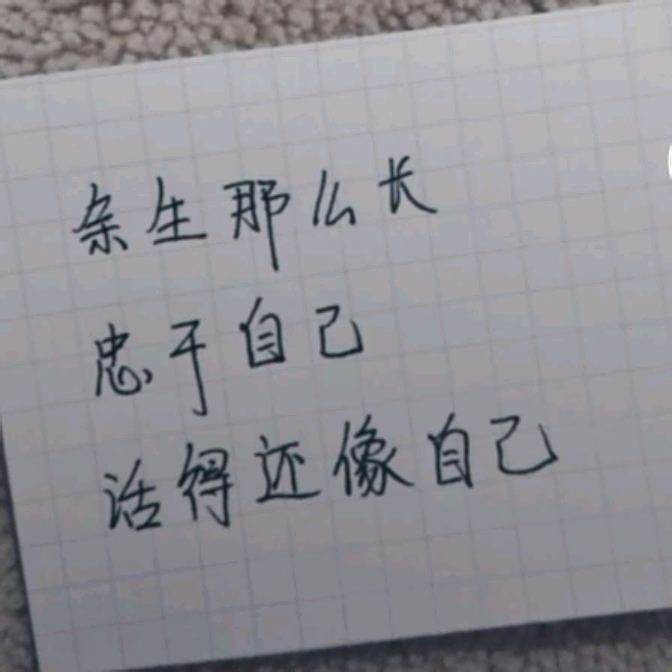 余生那么长
忠于自己
活得还像自己